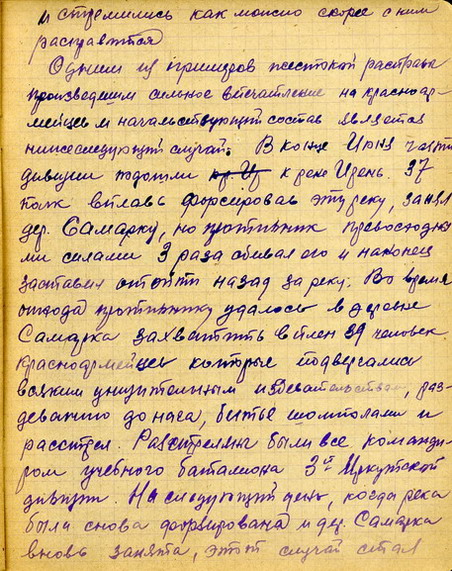 и стремились как можно скорее с ним
расправится
Одним из примеров жестокой расправы
произведшим сильное впечатление на красноар-
мейцев и начальствующий состав является
нижеследующий случай. В конце Июня части
дивизии подошли к реке Ирень. 37
полк вплавь форсировав эту реку, занял
дер. Самарку, но противник превосходны-
ми силами 3 раза сбивал его и наконец
заставил отойти назад за реку. Во время
отхода противнику удалось в деревне
Самарка захватить в плен 39 человек
красноармейцев которые подвергались
всяким унизительным издевательствам, раз-
деванию до нага, битье шомполами и
расстрел. Расстреляны были все команди-
ром учебного батальона 3й Иркутской
дивизии. На следующий день, когда река
была снова форсирована и дер. Самарка
вновь занята, этот случай стал